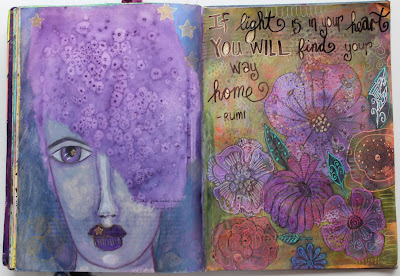 If light is in your heart
YOU WILL find your
way
home
- RUMI